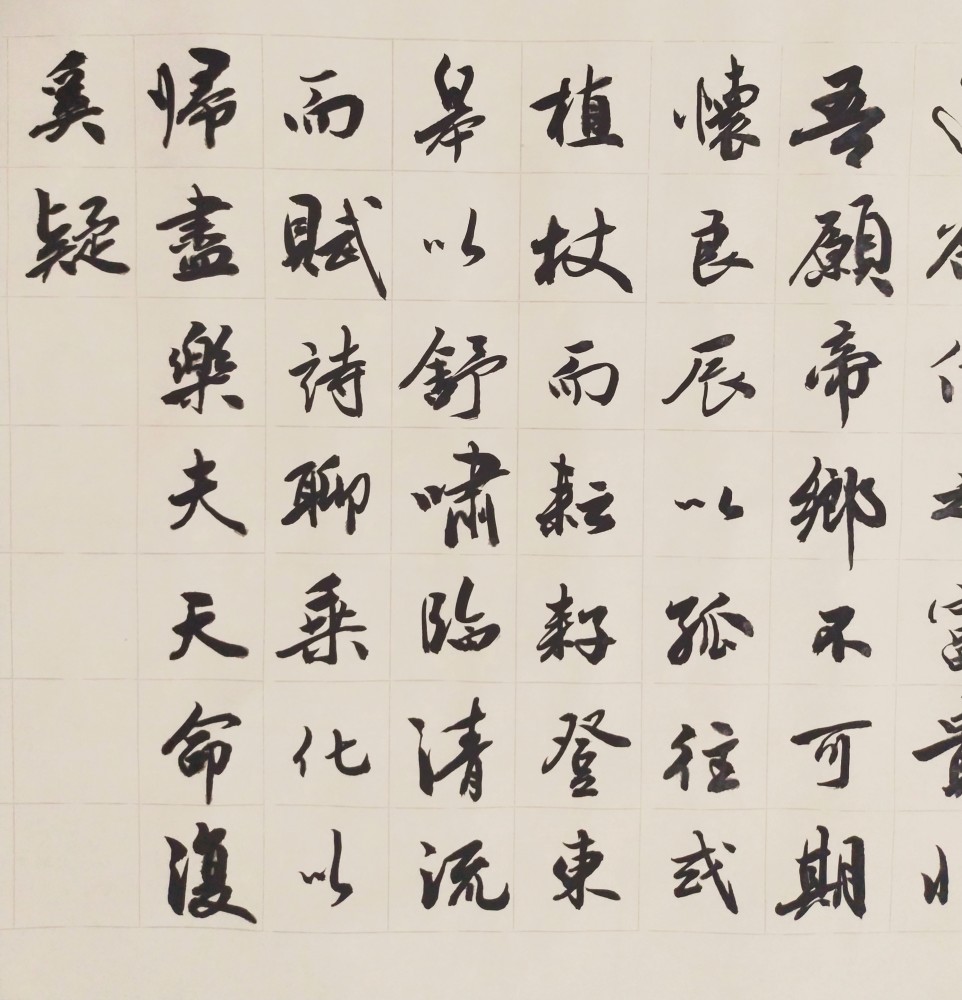 吾願帝鄉不可期
懷良辰以孤往或
植杖而耘耔登東
皋以舒嘯臨清流
而賦詩聊乘化以
歸盡樂夫天命復
奚疑